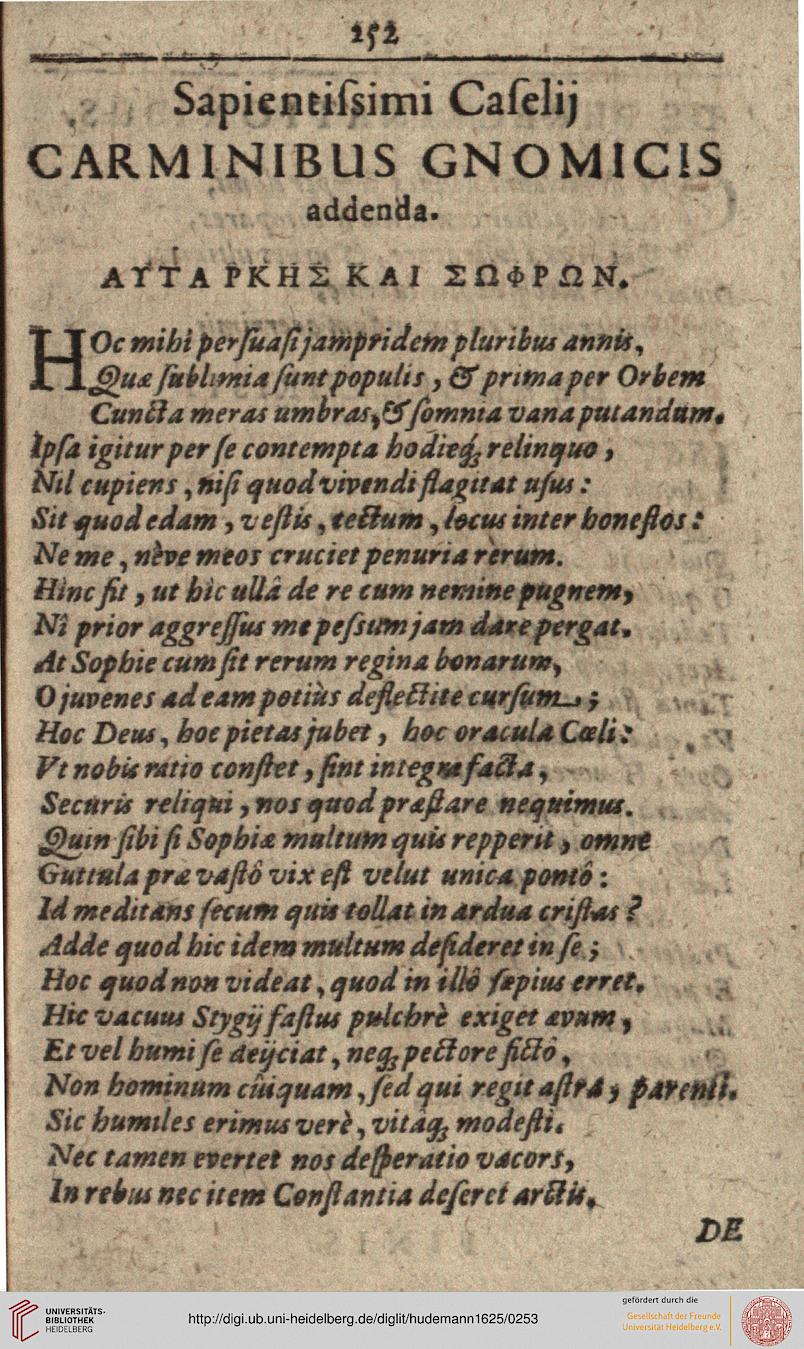 252
Sapientiſsimi Caſelij
CARMINIBUS GNOMICIS
addenda.
ΑΥΤΑΡΚΗΣ ΚΑΙ ΣΩΦΡΩΝ.
HOc mihi perſuaſi jampridem pluribus annis,
Quæ ſublimia ſunt populis, & prima per Orbem
Cuncta meras umbras, & ſomnia vana putandum.
Ipſa igitur per ſe contempta hodieq́; relinquo,
Nil cupiens, niſi quod vivendi flagitat uſus:
Sit quod edam, veſtis, tectum, locus inter honeſtos:
Ne me, nève meos cruciet penuria rèrum.
Hinc fit, ut hìc ullâ de re cum nemine pugnem,
Nî prior aggreſſus me peſsum jam dare pergat.
At Sophie cum ſit rerum regina bonarum,
O juvenes ad eam potiùs deflectite curſum;
Hoc Deus, hoc pietas jubet, hoc oracula Cœli:
Vt nobis ratio conſtet, ſint integra facta,
Securis reliqui, nos quod præſtare nequimus.
Quin ſibi ſi Sophiæ multum quis repperit, omne
Guttula præ vaſtô vix eſt velut unica pontô:
Id meditans ſecum quis tollat in ardua criſtas?
Adde quod hic idem multum deſideret in ſe;
Hoc quod non videat, quod in illô ſæpius erret.
Hic vacuus Stygij faſtus pulchrè exiget ævum,
Et vel humi ſe deijciat, neq; pectore fictô,
Non hominum cûiquam, ſed qui regit aſtra, parenti.
Sic humiles erimus verè, vitâq; modeſti.
Nec tamen evertet nos deſperatio vacors,
In rebus nec item Conſtantia deſeret arctis.
DE
UNIVERSITÄTS-
BIBLIOTHEK
HEIDELBERG
http://digi.ub.uni-heidelberg.de/diglit/hudemann1625/0253
gefördert durch die
Gesellschaft der Freunde
Universität Heidelberg e.V.